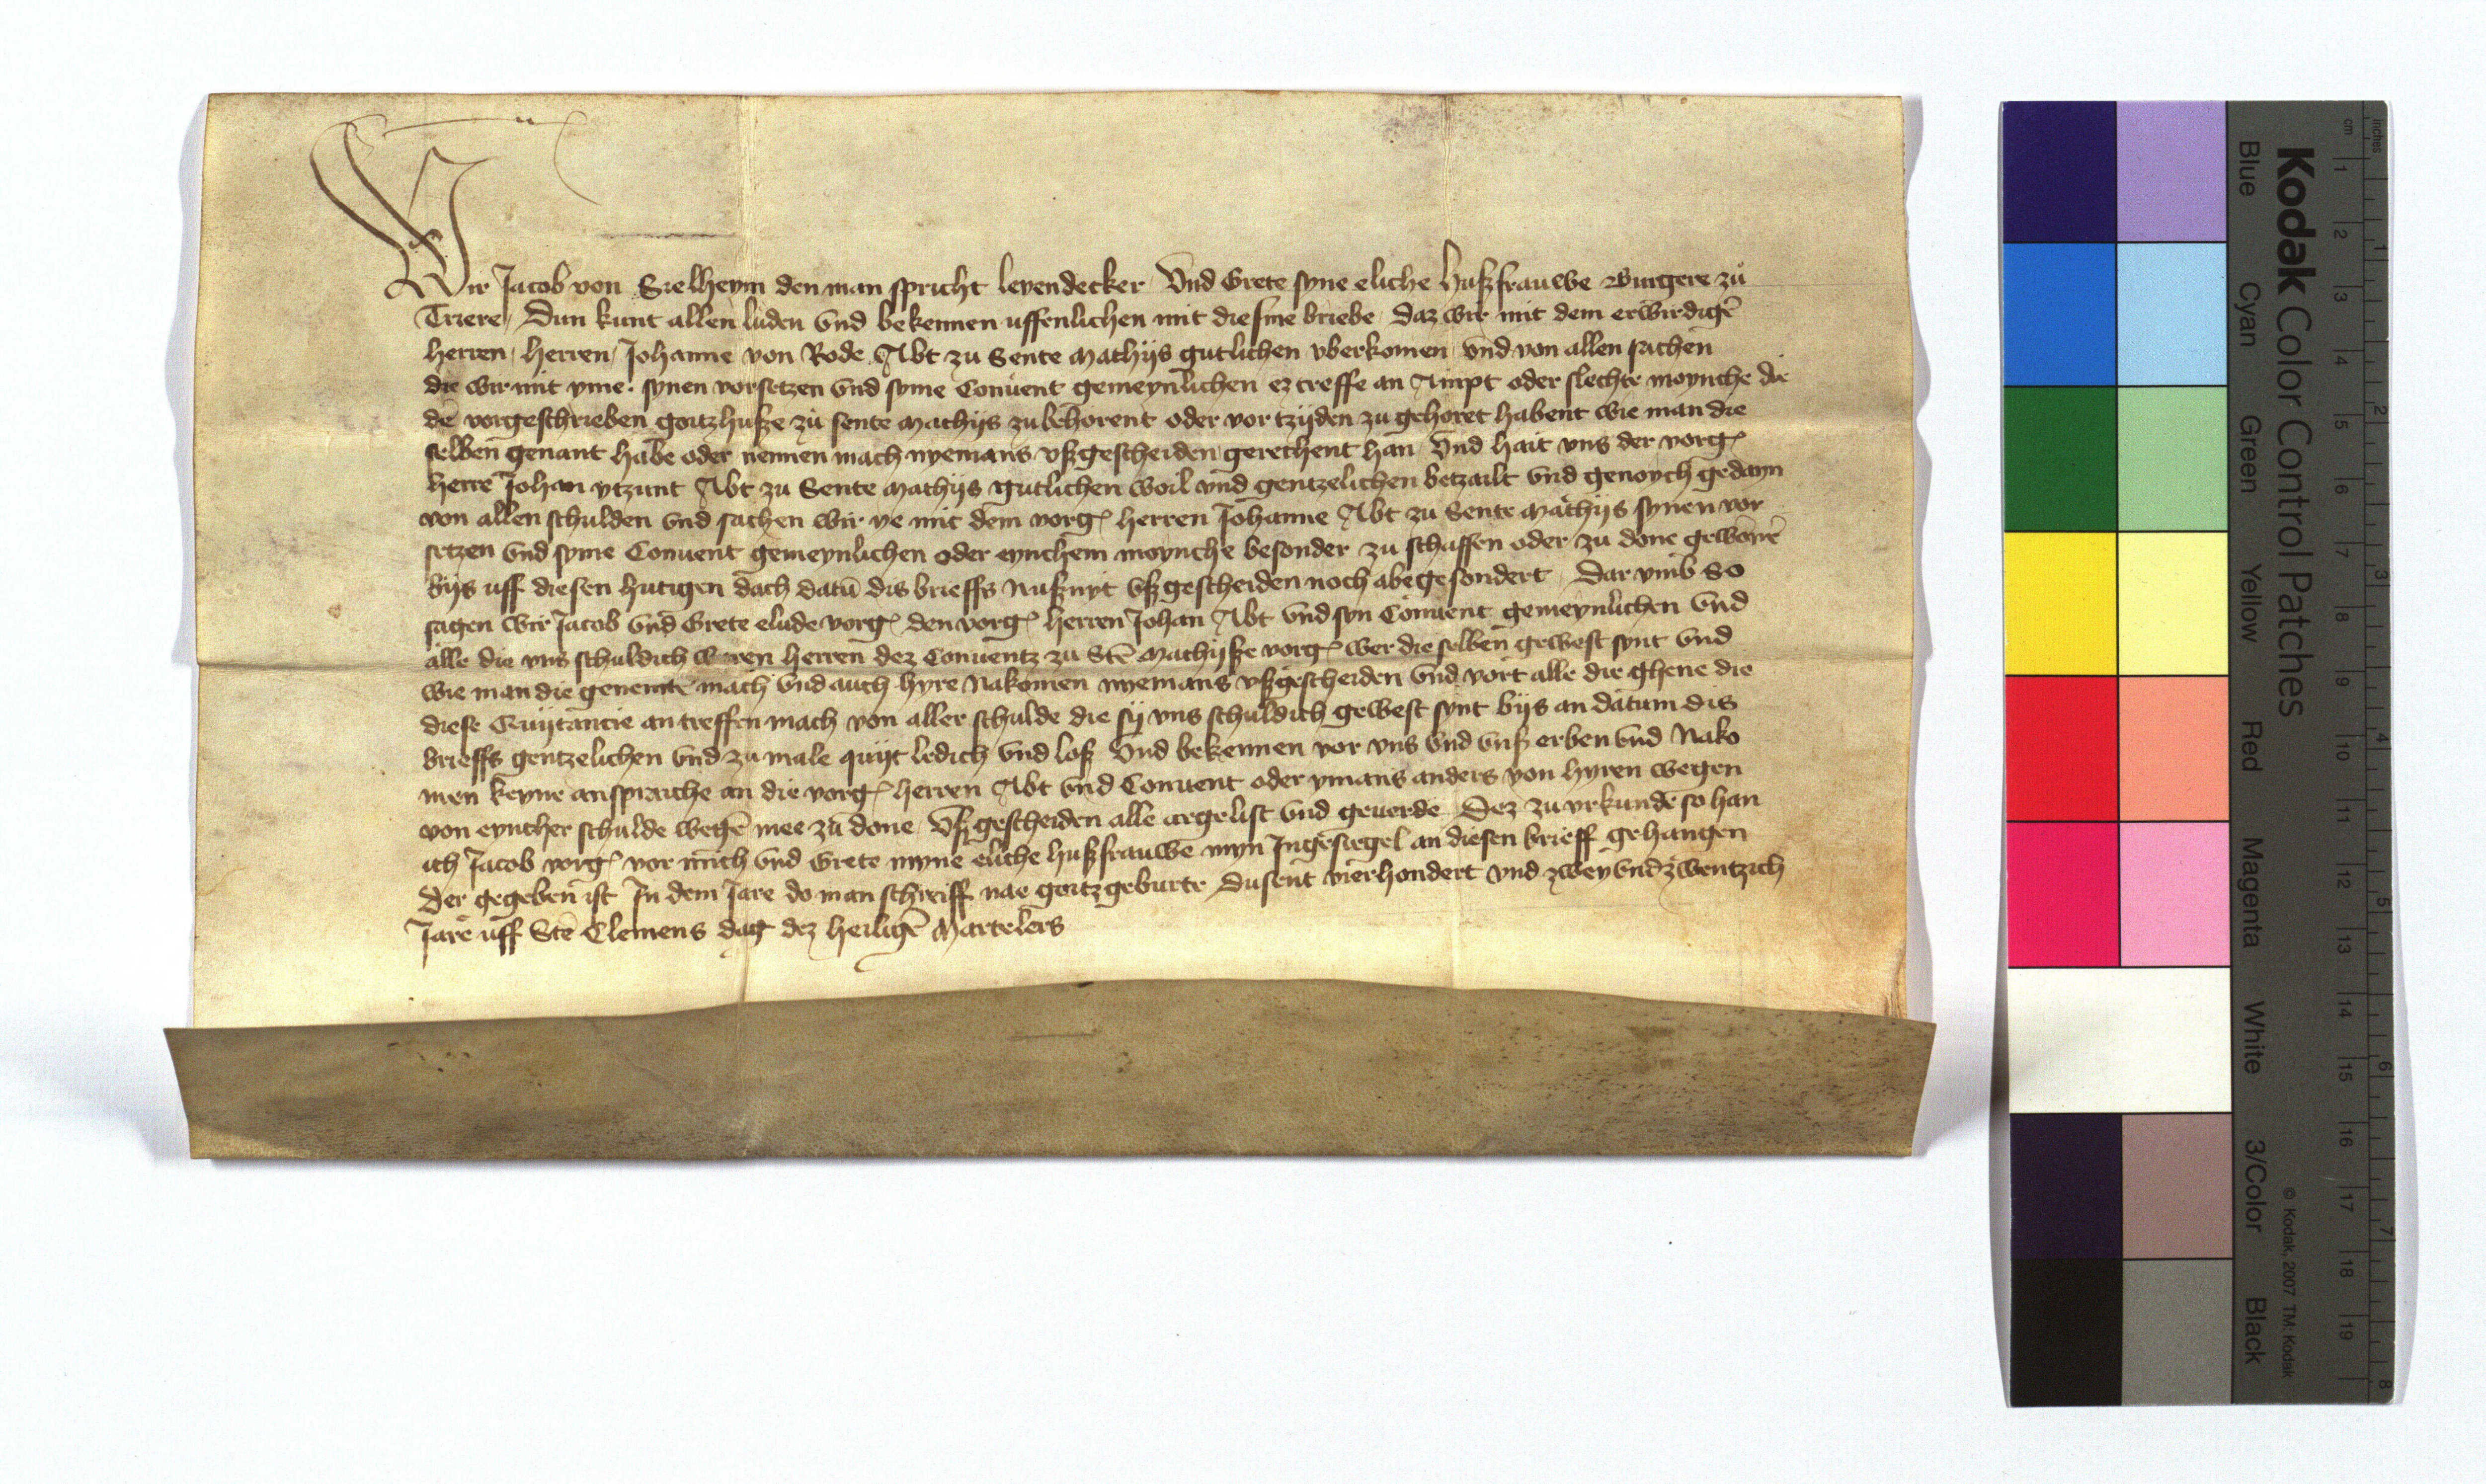 Wir Jacob von Sielheym den man spricht leyendecker Vnd Grete syne eliche hußfrauwe Burgere zů
Triere / Dun kunt allen luden vnd bekennen uffenlichen mit diesme briebe / daz wir mit dem erwirdigē
herren / herren / Johanne von Rode Abt zu Sente Mathijs gutlichen vberkomen vnd von allen sachen
die wir mit yme synen vorsetzen vnd syme Conuent gemeynlichen ez treffe an Ampt oder slechte moynche die
dē vorgeschrieben gotzhuße zů sente Mathijs zubehorent oder vor tzijden zu gehoret habent wie man die
selben genant habe oder nennen mach nyemans vßgescheiden gerechent han Vnd hait vns der vorg
herre Johan ytzunt Abt zu Sente Mathijs gutlichen woil vnd gentzelichen betzailt vnd genoych gedayn
von allen schulden vnd sachen wir ye mit dem vorg herren Johanne Abt zu Sente Mathijs synen vor
setzen vnd syme Conuent gemeynlichen oder eynchem moynche besonder zu schaffen oder zu done gewōnē
bijs uff diesen hutigen dach datū dis brieffs nußnyt vßgescheiden noch abegesondert Dar vmb So
sagen wir Jacob vnd Grete elude vorg den vorg herren Johan Abt vnd syn Conuent gemeynlichen vnd
alle die vns schuldich waren herren dez Conuentz zu Stē Mathijße vorg wer die selben gewest synt vnd
wie man die genenne mach vnd auch hyre Nakomen nyemans vßgescheiden vnd vort alle die ghene die
diese Quijtancie antreffen mach von aller schulde die sij vns schuldich gewest synt bijs an datum dis
brieffs gentzelichen vnd zu male quijt ledich vnd loß Vnd bekennen vor vns vnd vnß erben vnd Nako
men keyne ansprache an die vorg herren Abt vnd Conuent oder ymans anders von hyren wegen
von eyncher schulde wegē mee zu done vßgescheiden alle argelist vnd geuerde Dez zu vrkunde so han
ich Jacob vorg vor mich vnd Grete myne eliche hußfrauwe myn Ingesiegel an diesen brieff gehangen
Der gegeben ist In dem Jare do man schreiff nae gotz geburte dusent vierhondert vnd zwey vnd zwentzich
Jare uff Stē Clemens dag dez heiligē Martelers
Kodak Color Control Patches
Blue Cyan Green Yellow Red Magenta White 3/Color Black
© Kodak, 2007 TM: Kodak
cm 1 2 3 4 5 6 7 8 9 10 11 12 13 14 15 16 17 18 19
inches 1 2 3 4 5 6 7 8